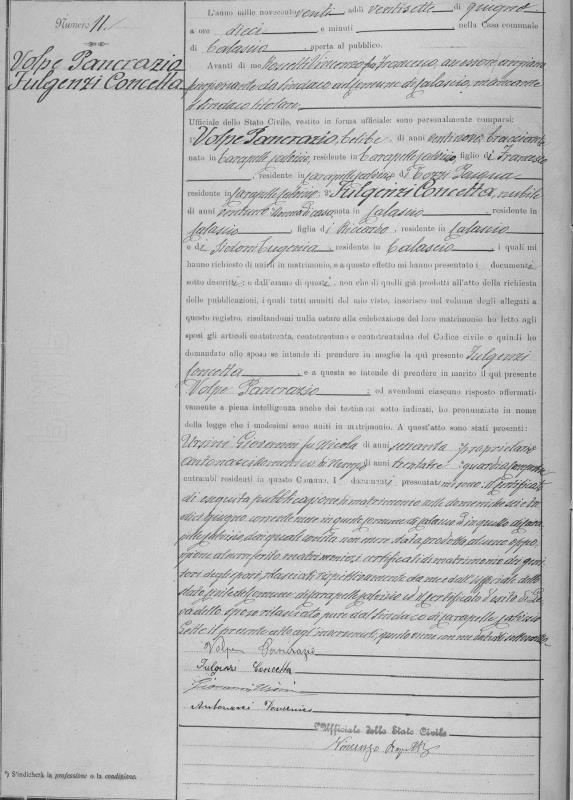 Numero 11.
Volpe Pancrazio
Fulgenzi Concetta
L'anno millenovecentoventi addì ventisette di giugno
a ore dieci e minuti nella Casa comunale
di Calascio aperta al pubblico.
Avanti di me Vincenzo fu Francesco, assessore anziano
funzionante da sindaco nel comune di Calascio, mancante
il sindaco titolare
Ufficiale dello Stato Civile, vestito in forma ufficiale: sono personalmente comparsi:
1° Volpe Pancrazio, celibe di anni ventinove, bracciante
nato in Carapelle Calvisio, residente in Carapelle Calvisio, figlio di Francesco
, residente in Carapelle Calvisio e di Cozzi Pasqua
residente in Carapelle Calvisio 2° Fulgenzi Concetta, nubile
di anni ventuno donna di casa nata in Calascio residente in
Calascio figlia di Riccardo, residente in Calascio
e di Eugenia residente in Calascio i quali mi
hanno richiesto di unirli in matrimonio, e a questo effetto mi hanno presentato i documenti
sotto descritti: e dall'esame di questi non che di quelli già prodotti all'atto della richiesta
delle pubblicazioni, i quali tutti muniti del mio visto, inserisco nel volume degli allegati a
questo registro, risultandomi nulla ostare alla celebrazione del loro matrimonio ho letto agli
sposi gli articoli centotrenta, centotrentuno e centotrentadue del Codice civile e quindi ho
domandato allo sposo se intende di prendere in moglie la qui presente Fulgenzi
Concetta, e a questa se intende di prendere in marito il qui presente
Volpe Pancrazio; ed avendomi ciascuno risposto affermati-
vamente a piena intelligenza anche dei testimoni sotto indicati, ho pronunziato in nome
della legge che i medesimi sono uniti in matrimonio. A quest'atto sono stati presenti:
Ursini Giovanni fu Nicola di anni sessanta proprietario
Antonacci Domenico di di anni trentatre guardia
entrambi residenti in questo Comune. I documenti presentati mi sono il certificato
di eseguita pubblicazione di matrimonio nelle domeniche sei e tre-
dici giugno corrente mese in questo comune di Calascio e in quello di Cara-
pelle Calvisio, dai quali risulta non essere stata prodotta alcuna oppo-
sizione al surriferito matrimonio; i certificati di matrimonio dei geni-
tori degli sposi, rilasciati rispettivamente da me e dall'ufficiale dello
stato civile del Comune di Carapelle Calvisio ed il certificato d'esito di le-
va dello sposo rilasciato pure dal sindaco di Carapelle Calvisio
Letto il presente atto agli intervenuti, questi viene con me da tutti sottoscritto
Volpe Pancrazio
Fulgenzi Concetta
Giovanni Ursini
Antonacci Domenico
L'Ufficiale dello Stato Civile
Vincenzo
*) S'indicherà la professione o la condizione.